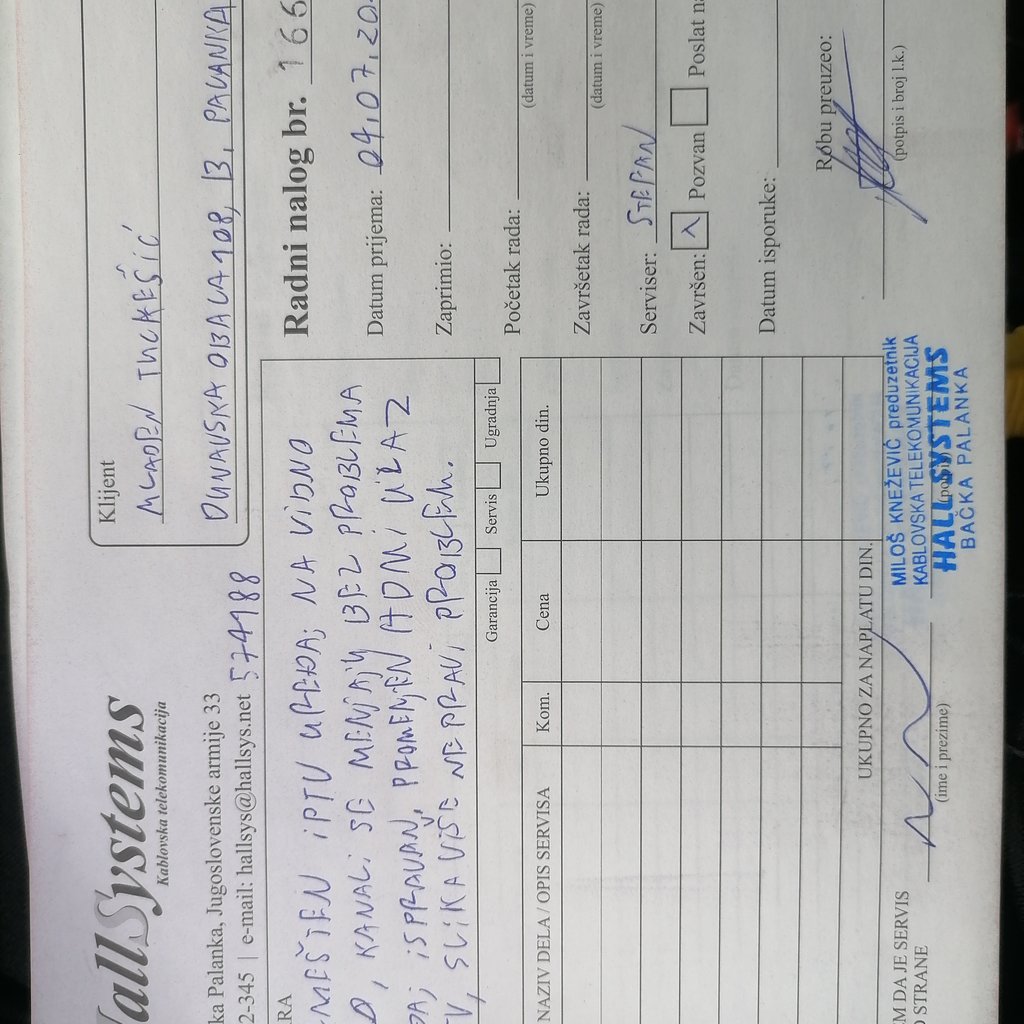 Hall Systems
Kablovska telekomunikacija
ka Palanka, Jugoslovenske armije 33
2-345 | e-mail: hallsys@hallsys.net 574988
Klijent
MLADEN
DUNAVSKA OBALA 108, B. PALANKA
MEŠTEN IPTV UREĐAJ NA VIDNO
KANALI SE MENJAJU BEZ PROBLEMA
ISPRAVAN, PROMENJEN HDMI ULAZ
TV, SLIKA VIŠE NE PRAVI PROBLEM.
Garancija Servis Ugradnja
Radni nalog br. 166
Datum prijema: 04.07.20
Zaprimio:
Početak rada:
(datum i vreme)
Završetak rada:
(datum i vreme)
Serviser: STEFAN
Završen: Pozvan Poslat na
Datum isporuke:
NAZIV DELA / OPIS SERVISA Kom. Cena Ukupno din.
UKUPNO ZA NAPLATU DIN.
M DA JE SERVIS
STRANE
(ime i prezime)
MILOŠ KNEŽEVIĆ preduzetnik
KABLOVSKA TELEKOMUNIKACIJA
HALL SYSTEMS
BAČKA PALANKA
Robu preuzeo:
(potpis i broj l.k.)